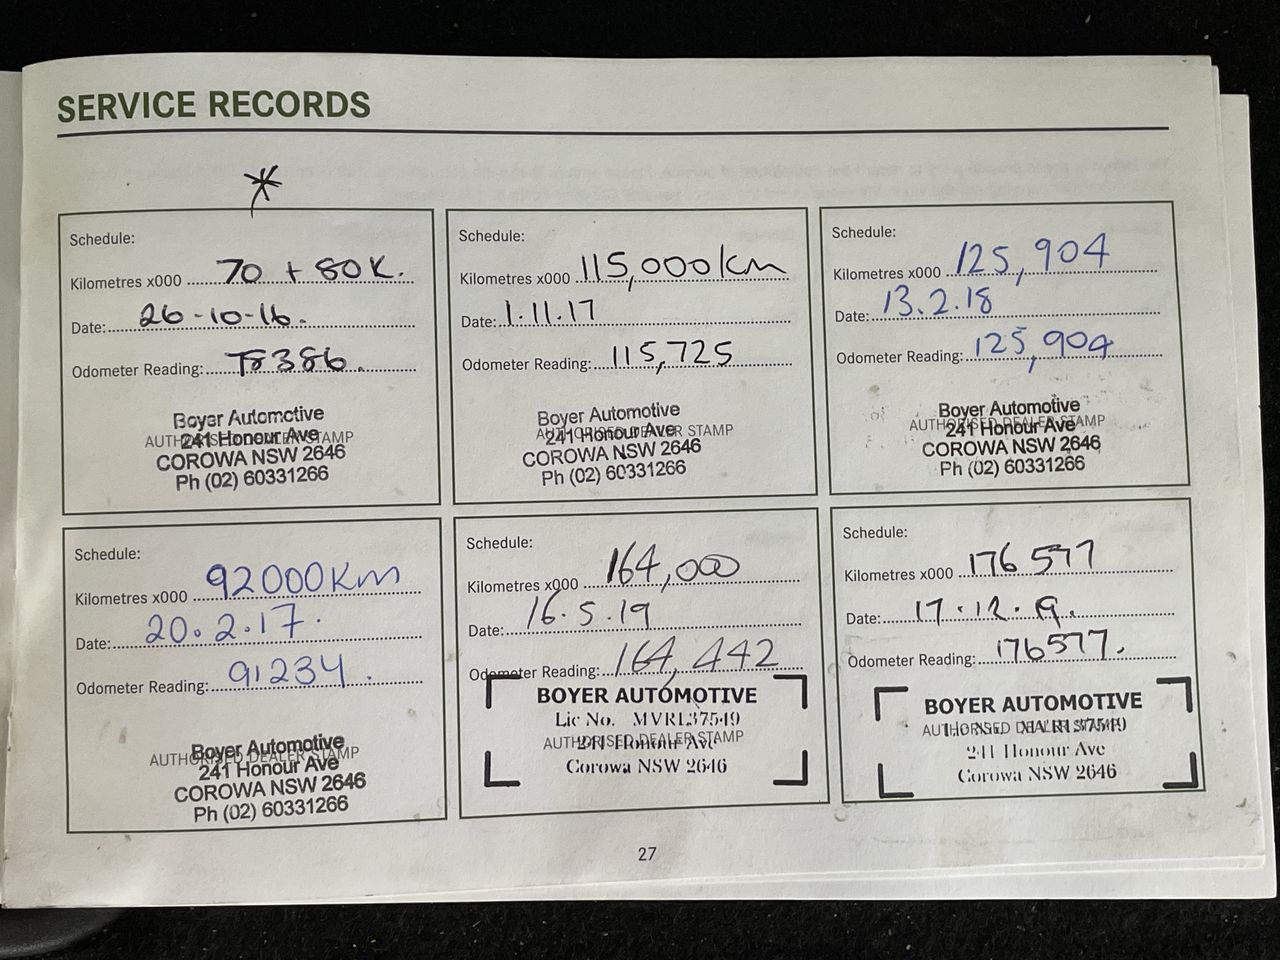 SERVICE RECORDS
*
Schedule:
Kilometres x000 70 + 80K.
Date: 26-10-16.
Odometer Reading: 78386.
AUTHORISED DEALER STAMP
Boyer Automotive
241 Honour Ave
COROWA NSW 2646
Ph (02) 60331266
Schedule:
Kilometres x000 115,000km
Date: 1.11.17
Odometer Reading: 115,725
AUTHORISED DEALER STAMP
Boyer Automotive
241 Honour Ave
COROWA NSW 2646
Ph (02) 60331266
Schedule:
Kilometres x000 125,904
Date: 13.2.18
Odometer Reading: 125,904
AUTHORISED DEALER STAMP
Boyer Automotive
241 Honour Ave
COROWA NSW 2646
Ph (02) 60331266
Schedule:
Kilometres x000 92000Km
Date: 20.2.17.
Odometer Reading: 91234.
AUTHORISED DEALER STAMP
Boyer Automotive
241 Honour Ave
COROWA NSW 2646
Ph (02) 60331266
Schedule:
Kilometres x000 164,000
Date: 16.5.19
Odometer Reading: 164,442
BOYER AUTOMOTIVE
Lic No. MVRL37549
AUTHORISED DEALER STAMP
241 Honour Ave
Corowa NSW 2646
Schedule:
Kilometres x000 176577
Date: 17.12.19.
Odometer Reading: 176577.
BOYER AUTOMOTIVE
AUTHORISED DEALER STAMP
241 Honour Ave
Corowa NSW 2646
27